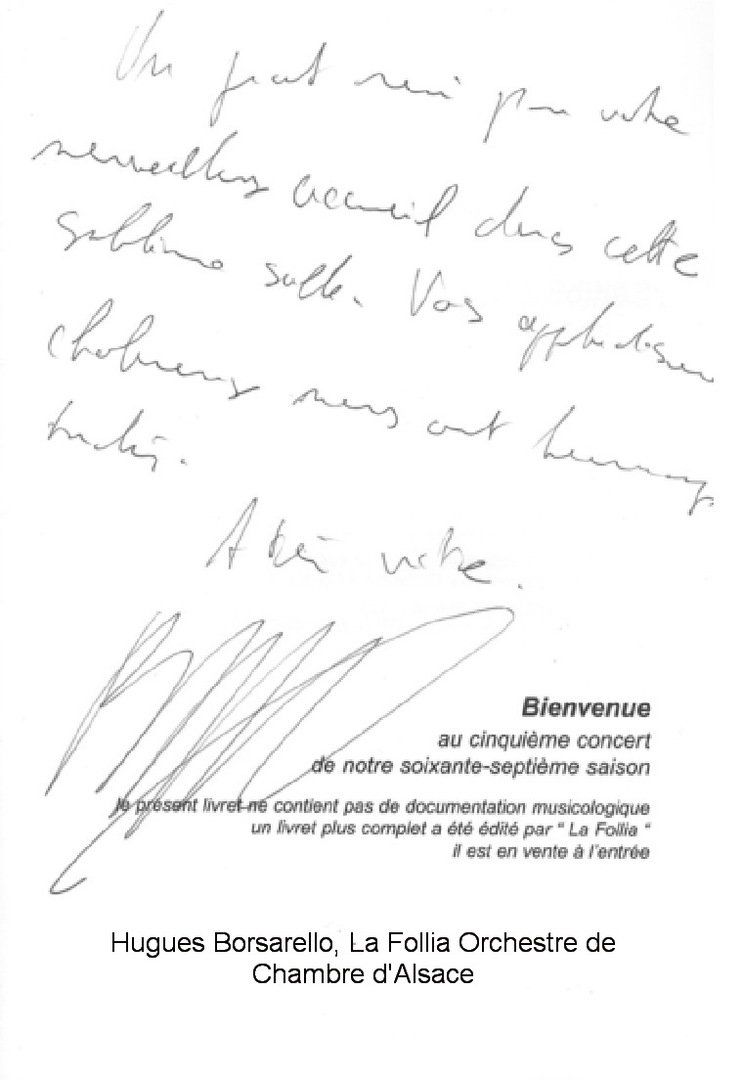 Un grand merci pour votre
merveilleux accueil dans cette
sublime salle. Vos applaudissements
chaleureux nous ont beaucoup
touchés.
A très vite.
Bienvenue
au cinquième concert
de notre soixante-septième saison
le présent livret ne contient pas de documentation musicologique
un livret plus complet a été édité par " La Follia "
il est en vente à l'entrée
Hugues Borsarello, La Follia Orchestre de
Chambre d'Alsace